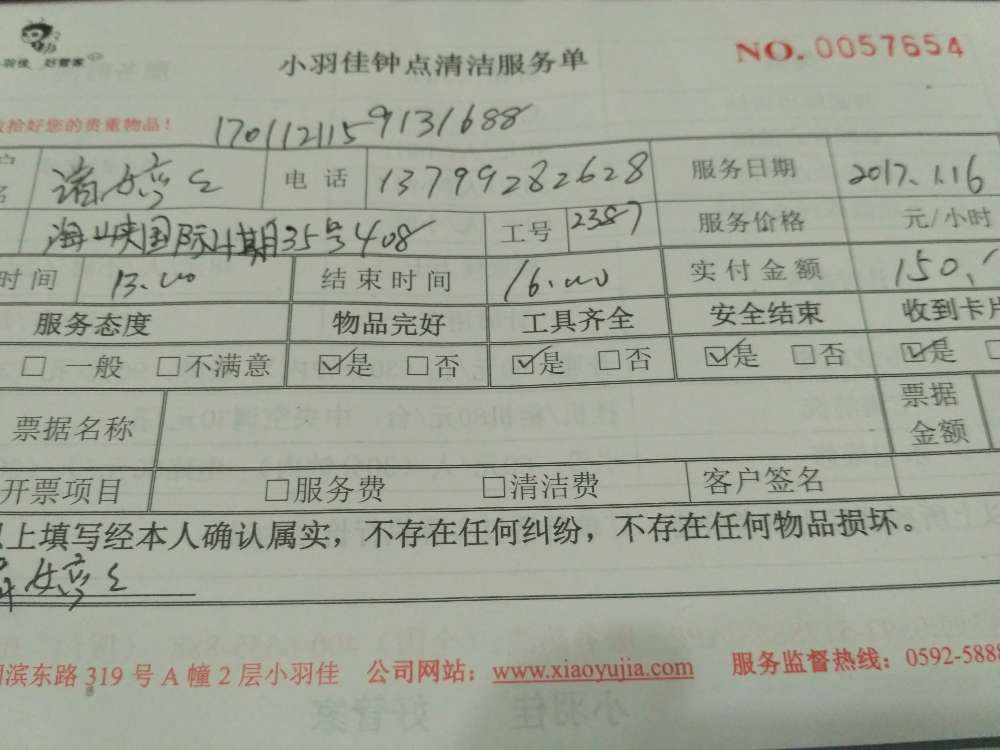 小羽佳钟点清洁服务单 NO. 0057654
羽佳 好管家
拾好您的贵重物品！ 1701121159131688
电话 13799282628 服务日期 2017.1.16
海峡国际社期35号408 工号 2387 服务价格 元/小时
时间 13.00 结束时间 16.00 实付金额 150.
服务态度 物品完好 工具齐全 安全结束 收到卡片
□一般 □不满意 ☑是 □否 ☑是 □否 ☑是 □否 ☑是
票据名称 票据金额
开票项目 □服务费 □清洁费 客户签名
以上填写经本人确认属实，不存在任何纠纷，不存在任何物品损坏。
湖滨东路 319 号 A 幢 2 层小羽佳 公司网站：www.xiaoyujia.com 服务监督热线：0592-5888